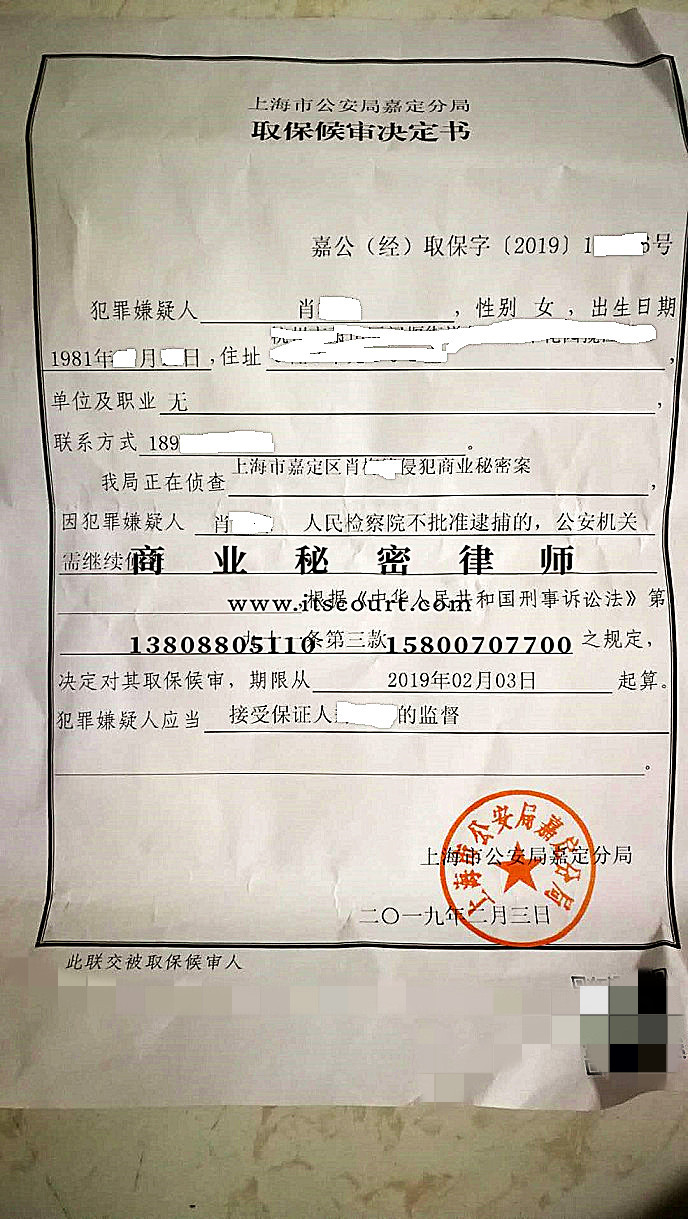 上海市公安局嘉定分局
取保候审决定书
嘉公（经）取保字〔2019〕1 号
犯罪嫌疑人 肖 ，性别 女 ，出生日期
1981年 月 日，住址 ，
单位及职业 无 ，
联系方式 189 。
我局正在侦查 上海市嘉定区肖 侵犯商业秘密案 ，
因犯罪嫌疑人 肖 人民检察院不批准逮捕的，公安机关
需继续
商业秘密律师
根据《中华人民共和国刑事诉讼法》第
www.itscourt.com
条第三款 之规定，
13808805110 15800707700
决定对其取保候审，期限从 2019年02月03日 起算。
犯罪嫌疑人应当 接受保证人 的监督
。
上海市公安局嘉定分局
上海市公安局嘉定分局
二〇一九年二月三日
此联交被取保候审人